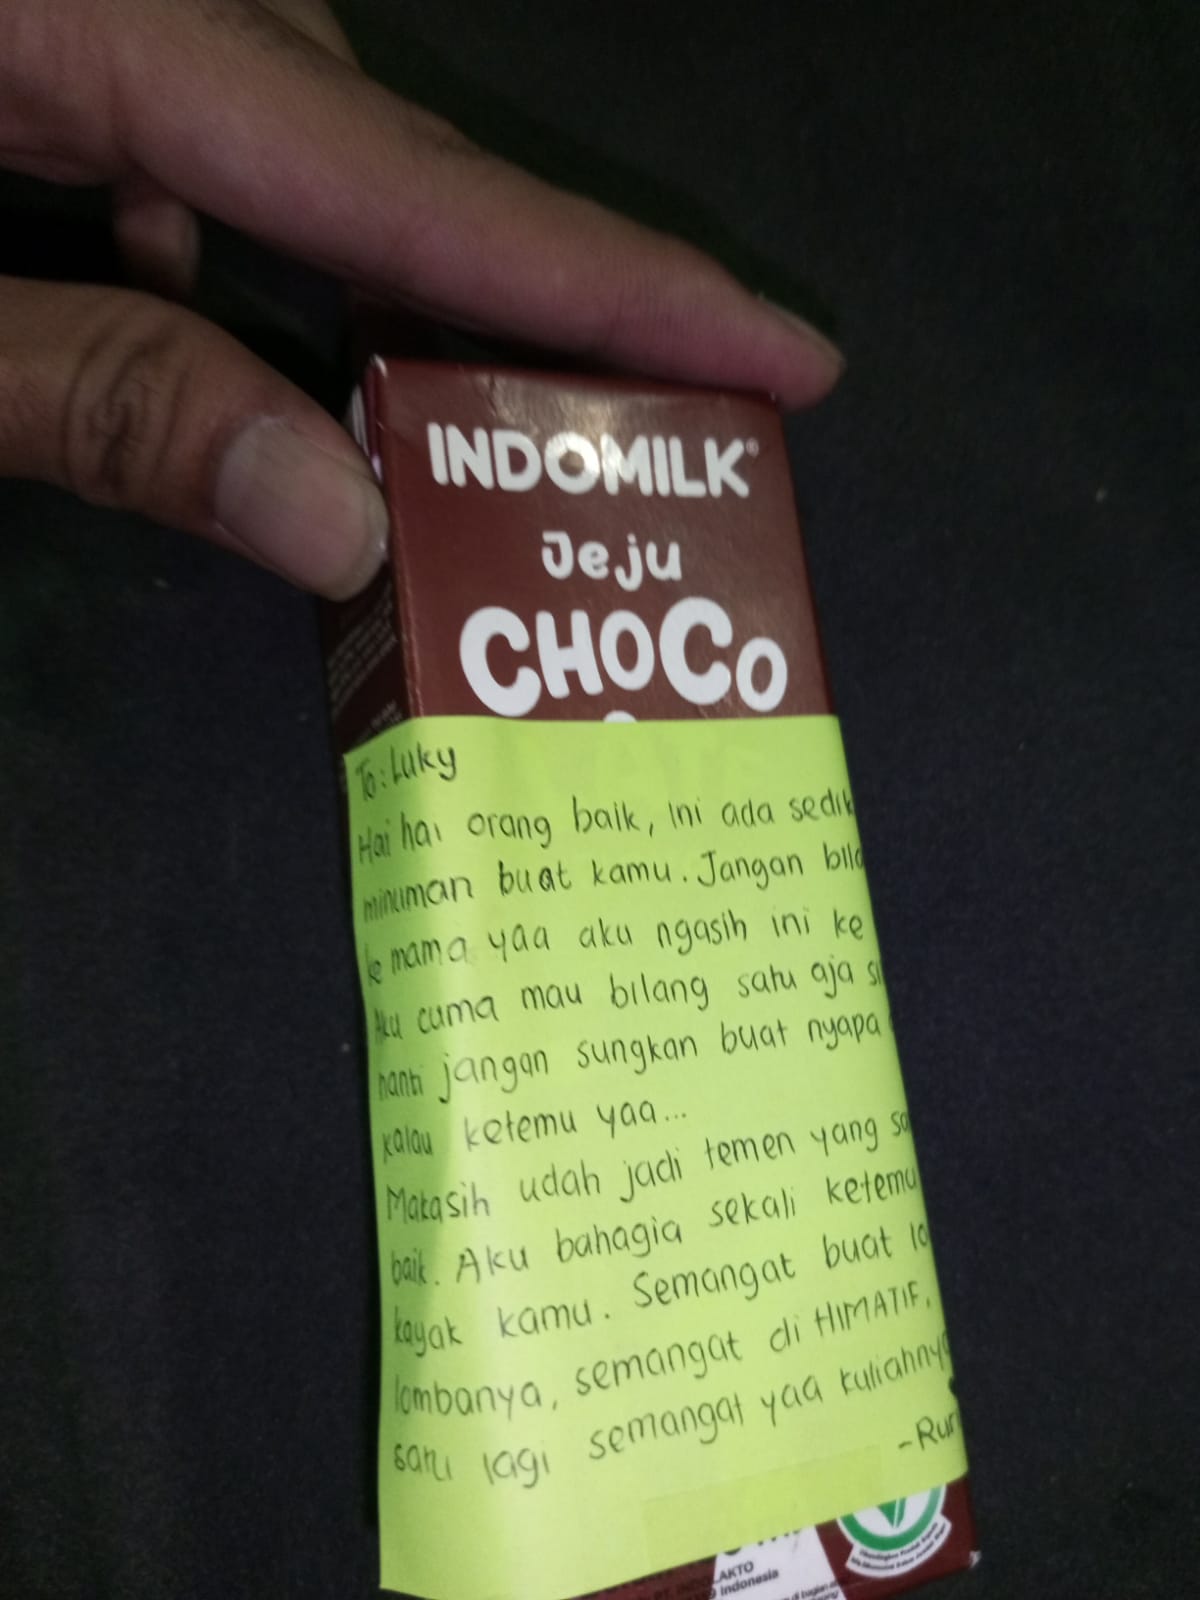 INDOMILK
Jeju
CHOCO
To: Luky
Hai hai orang baik, ini ada
minuman buat kamu. Jangan
ke mama yaa aku ngasih ini ke
Aku cuma mau bilang satu aja
nanti jangan sungkan buat nyapa
kalau ketemu yaa...
Makasih udah jadi temen yang
baik. Aku bahagia sekali ketemu
kayak kamu. Semangat buat
lombanya, semangat di HIMATIF,
satu lagi semangat yaa kuliahnya
Indonesia